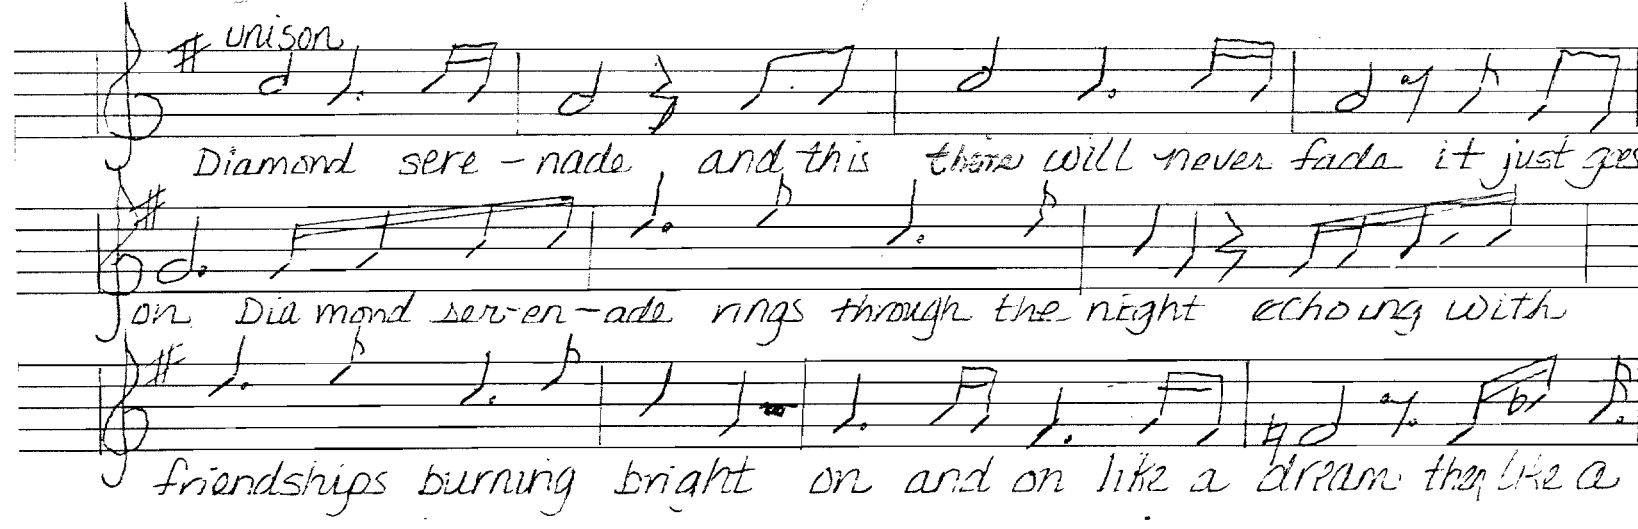 unison
Diamond sere-nade and this there will never fade it just goes
on Diamond ser-en-ade rings through the night echoing with
friendships burning bright on and on like a dream then like a